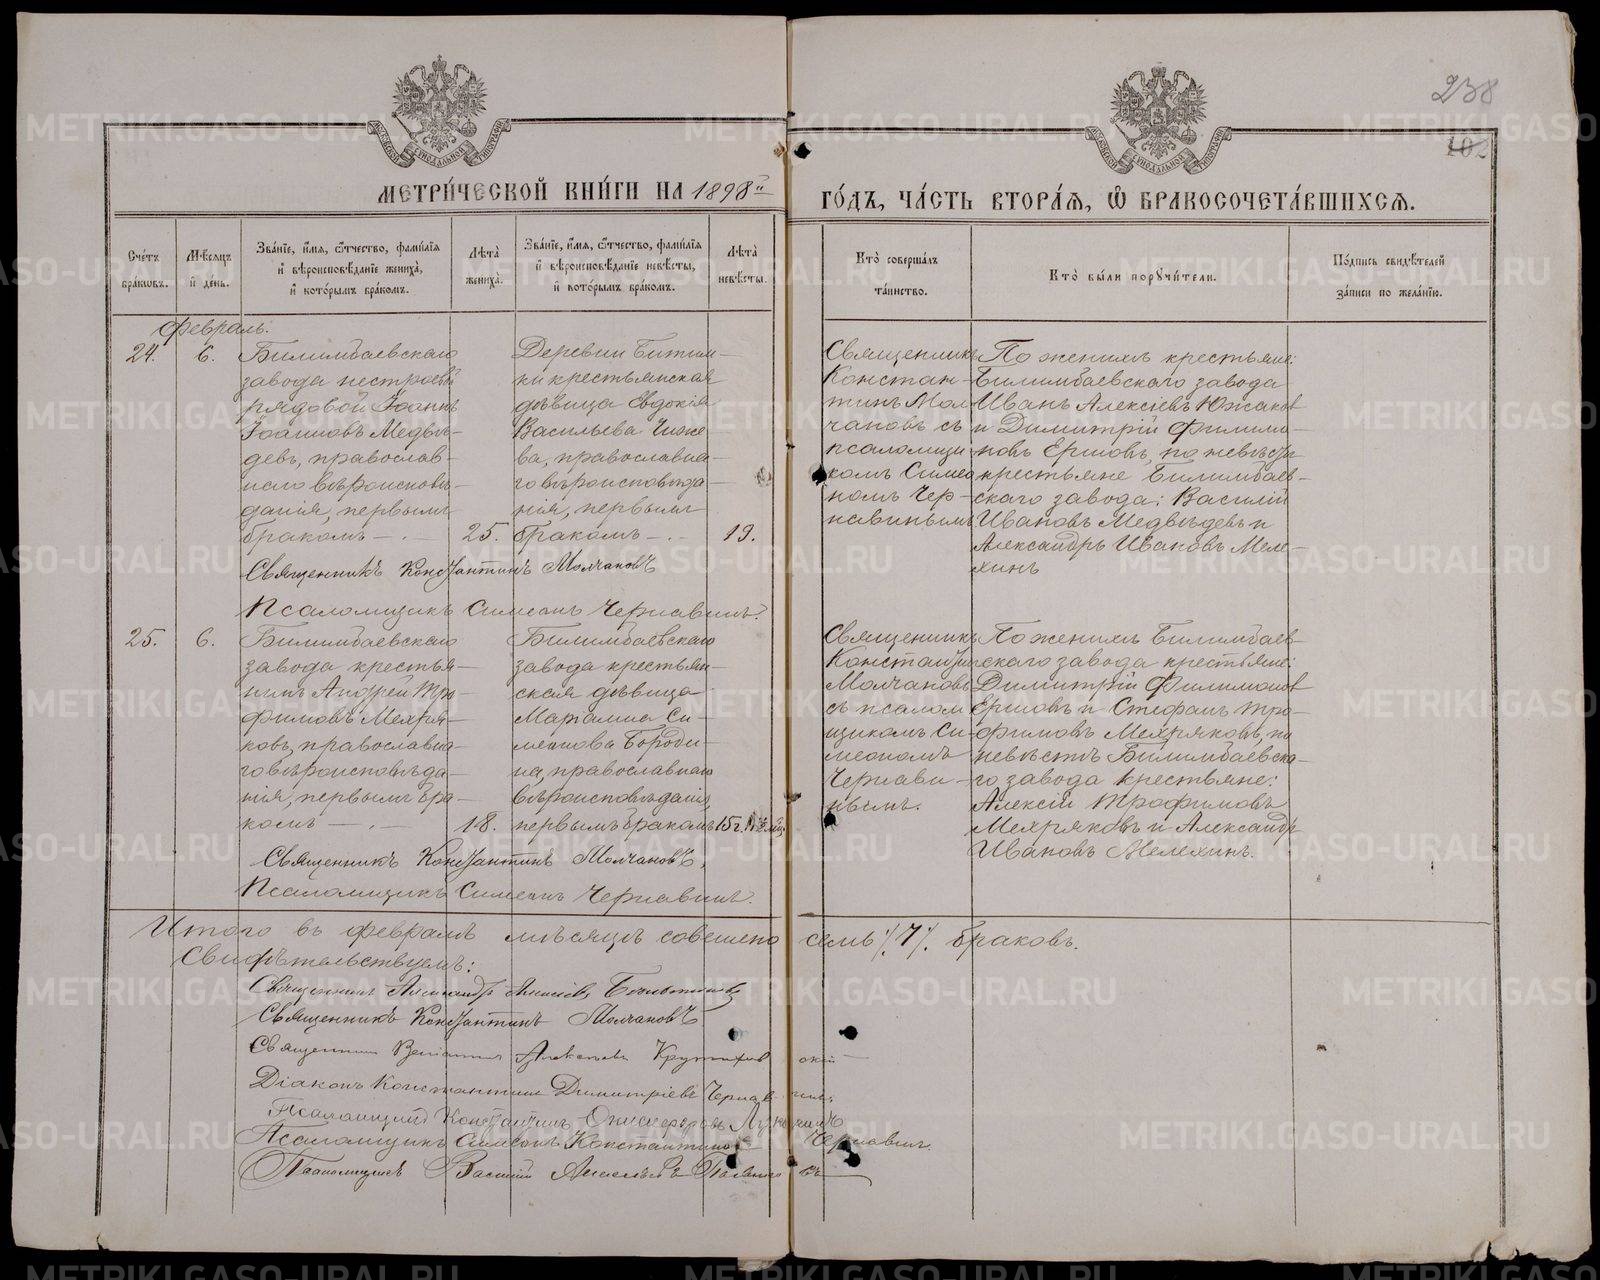 238
102
МЕТРИ́ЧЕСКОЙ КНИ́ГИ НА 1898й ГО́ДЪ, ЧА́СТЬ ВТОРА́Я, Ѡ БРАКОСОЧЕТА́ВШИХСЯ.
Сче́тъ бра́ковъ.
Мѣ́сяцъ и́ де́нь.
Зва́нїе, и́мя, ѿтчество, фами́лїя и́ вѣроисповѣ́данїе жениха̀, и́ кото́рымъ бра́комъ.
Лѣта̀ жениха̀.
Зва́нїе, и́мя, ѿтчество, фами́лїя и́ вѣроисповѣ́данїе невѣ́сты, и́ кото́рымъ бра́комъ.
Лѣта̀ невѣ́сты.
Кто̀ соверша́лъ та́инство.
Кто̀ бы́ли порꙋчи́тели.
По́дпись свидѣ́телей за́писи по жела́нїю.
Февраль.
24.
6.
Билимбаевскаго
завода нестроевой
рядовой Іоаннъ
Іоанновъ Медвѣ-
девъ, православ-
наго вѣроисповѣ-
данія, первымъ
бракомъ — . —
25.
Деревни Битим-
ки крестьянская
дѣвица Евдокія
Васильева Чиже
ва, православна-
го вѣроисповѣда-
нія, первымъ
бракомъ — . —
19.
Священникъ
Констан-
тинъ Мол
чановъ съ
псаломщи
комъ Симео
номъ Чер-
навинымъ
По женихѣ крестьяне:
Билимбаевскаго завода
Иванъ Алексіевъ Южаков
и Димитрій Филимо-
новъ Ершовъ, по невѣстѣ
крестьяне Билимбаев-
скаго завода: Василій
Ивановъ Медвѣдевъ и
Александръ Ивановъ Меле-
хинъ
Священникъ Константинъ Молчановъ
Псаломщикъ Симеонъ Чернавинъ.
25.
6.
Билимбаевскаго
завода крестья-
нинъ Андрей Тро-
фимовъ Мехряк-
ковъ, православна-
го вѣроисповѣда-
нія, первымъ бра-
комъ — . —
18.
Билимбаевскаго
завода крестьян-
ская дѣвица
Маріамна Си-
меонова Бороди-
на, православнаго
вѣроисповѣданія,
первымъ бракомъ
15 г.
Священникъ
Константин
Молчановъ
съ псалом
щикомъ Си-
меономъ
Чернави-
нымъ.
По женихѣ Билимбаев-
скаго завода крестьяне:
Димитрій Филимонов
Ершовъ и Стефанъ Тро-
фимовъ Мехряковъ, по
невѣстѣ Билимбаевска-
го завода крестьяне:
Алексій Трофимовъ
Мехряковъ и Александр
Ивановъ Мелехинъ.
Священникъ Константинъ Молчановъ,
Псаломщикъ Симеонъ Чернавинъ.
Итого въ февралѣ мѣсяцѣ совешено семь /7/. браковъ.
Свидѣтельствуемъ:
Священникъ Александръ
Священникъ Константинъ Молчановъ
Священникъ Веніаминъ Алексѣевъ
Діаконъ Константинъ Димитріевъ Чернавинъ
Псаломщикъ Константинъ
Псаломщикъ Симеонъ Константиновъ Чернавинъ.
Псаломщикъ Василій